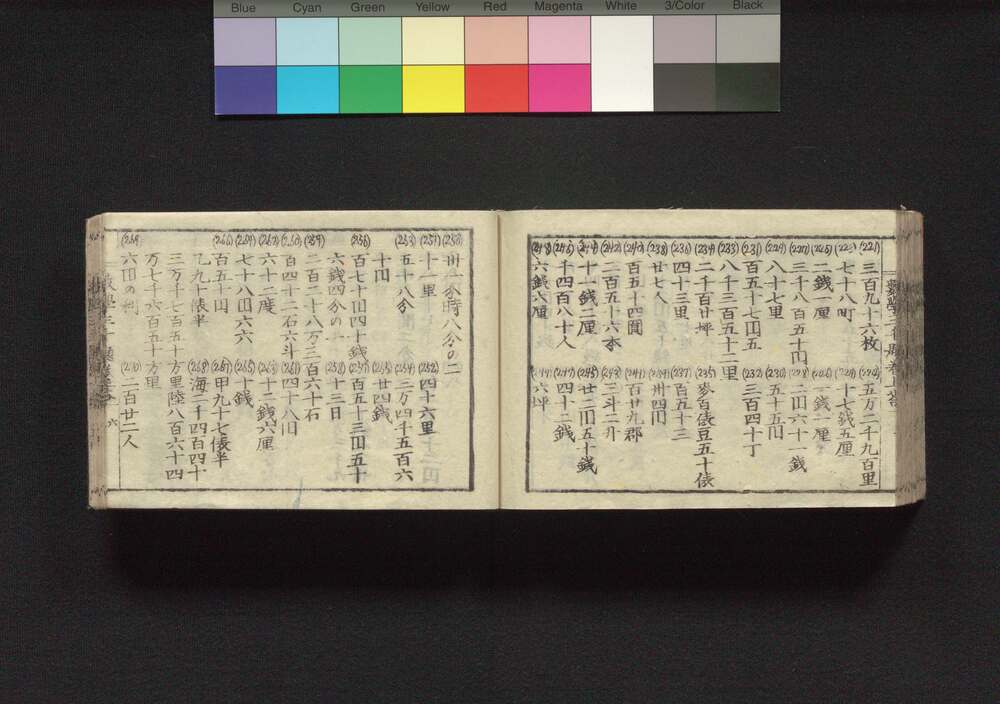 Blue Cyan Green Yellow Red Magenta White 3/Color Black
(221) 三百九十六枚
五万二千九百里
七十八町
十七銭五厘
(225) 二銭一厘
一銭一厘
(227) 三千八百五十円
(228) 二円六十一銭
(229) 八十七里
(230) 五十五円
(231) 百五十七円五
(232) 三百四十丁
(233) 八千三百五十二里
(234) 二千百廿坪
(235) 麥百俵豆五十俵
(236) 四十三里
(237) 百五十三
(238) 廿七人
卅四円
(240) 百五十四圓
百廿九郡
(242) 二百五十六本
(243) 三斗二升
(244) 十一銭二厘
(245) 廿二円五十銭
(246) 千四百八十人
(247) 四十二銭
(248) 六銭六厘
六坪
(250) 卅一分時八分の二
(251) 十一里
(252) 四十六里
(253) 五十八分
三万四千五百六
十円
廿四銭
(256) 百七十円四十銭
(257) 百五十三円五十
六銭四分の一
十三日
(259) 二百二十八万三百六十石
(260) 百四十二石六斗
(261) 四十八円
(262) 六十二度
(263) 十二銭六厘
(264) 七十八円六六
(265) 十銭
(266) 百五十円
(267) 甲九十七俵半
乙九十俵半
(268) 海二千四百四十
三万千七百五十方里陸八百六十四
万七千六百五十方里
(269) 六円の利
(270) 二百廿二人